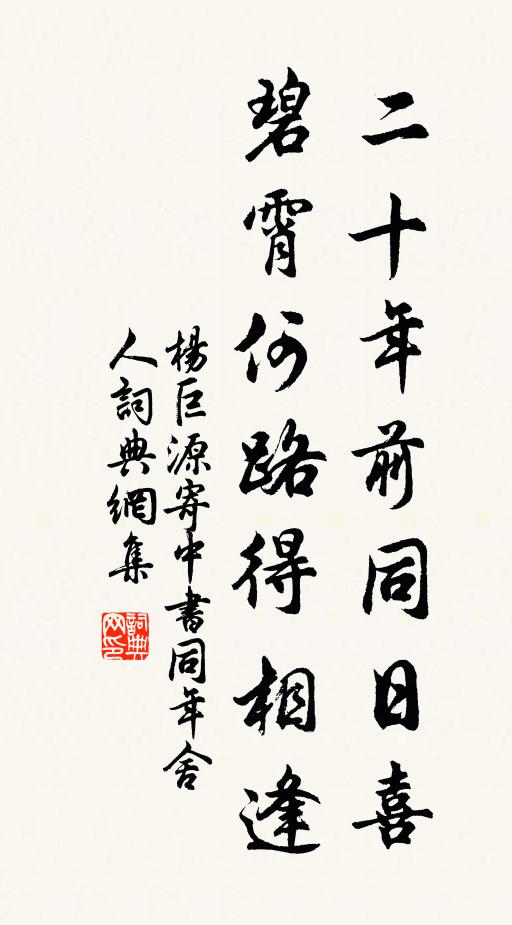 二十年前同日喜
碧霄何路得相逢
楊巨源寄中書同年舍
人詞典網集
詞典网印